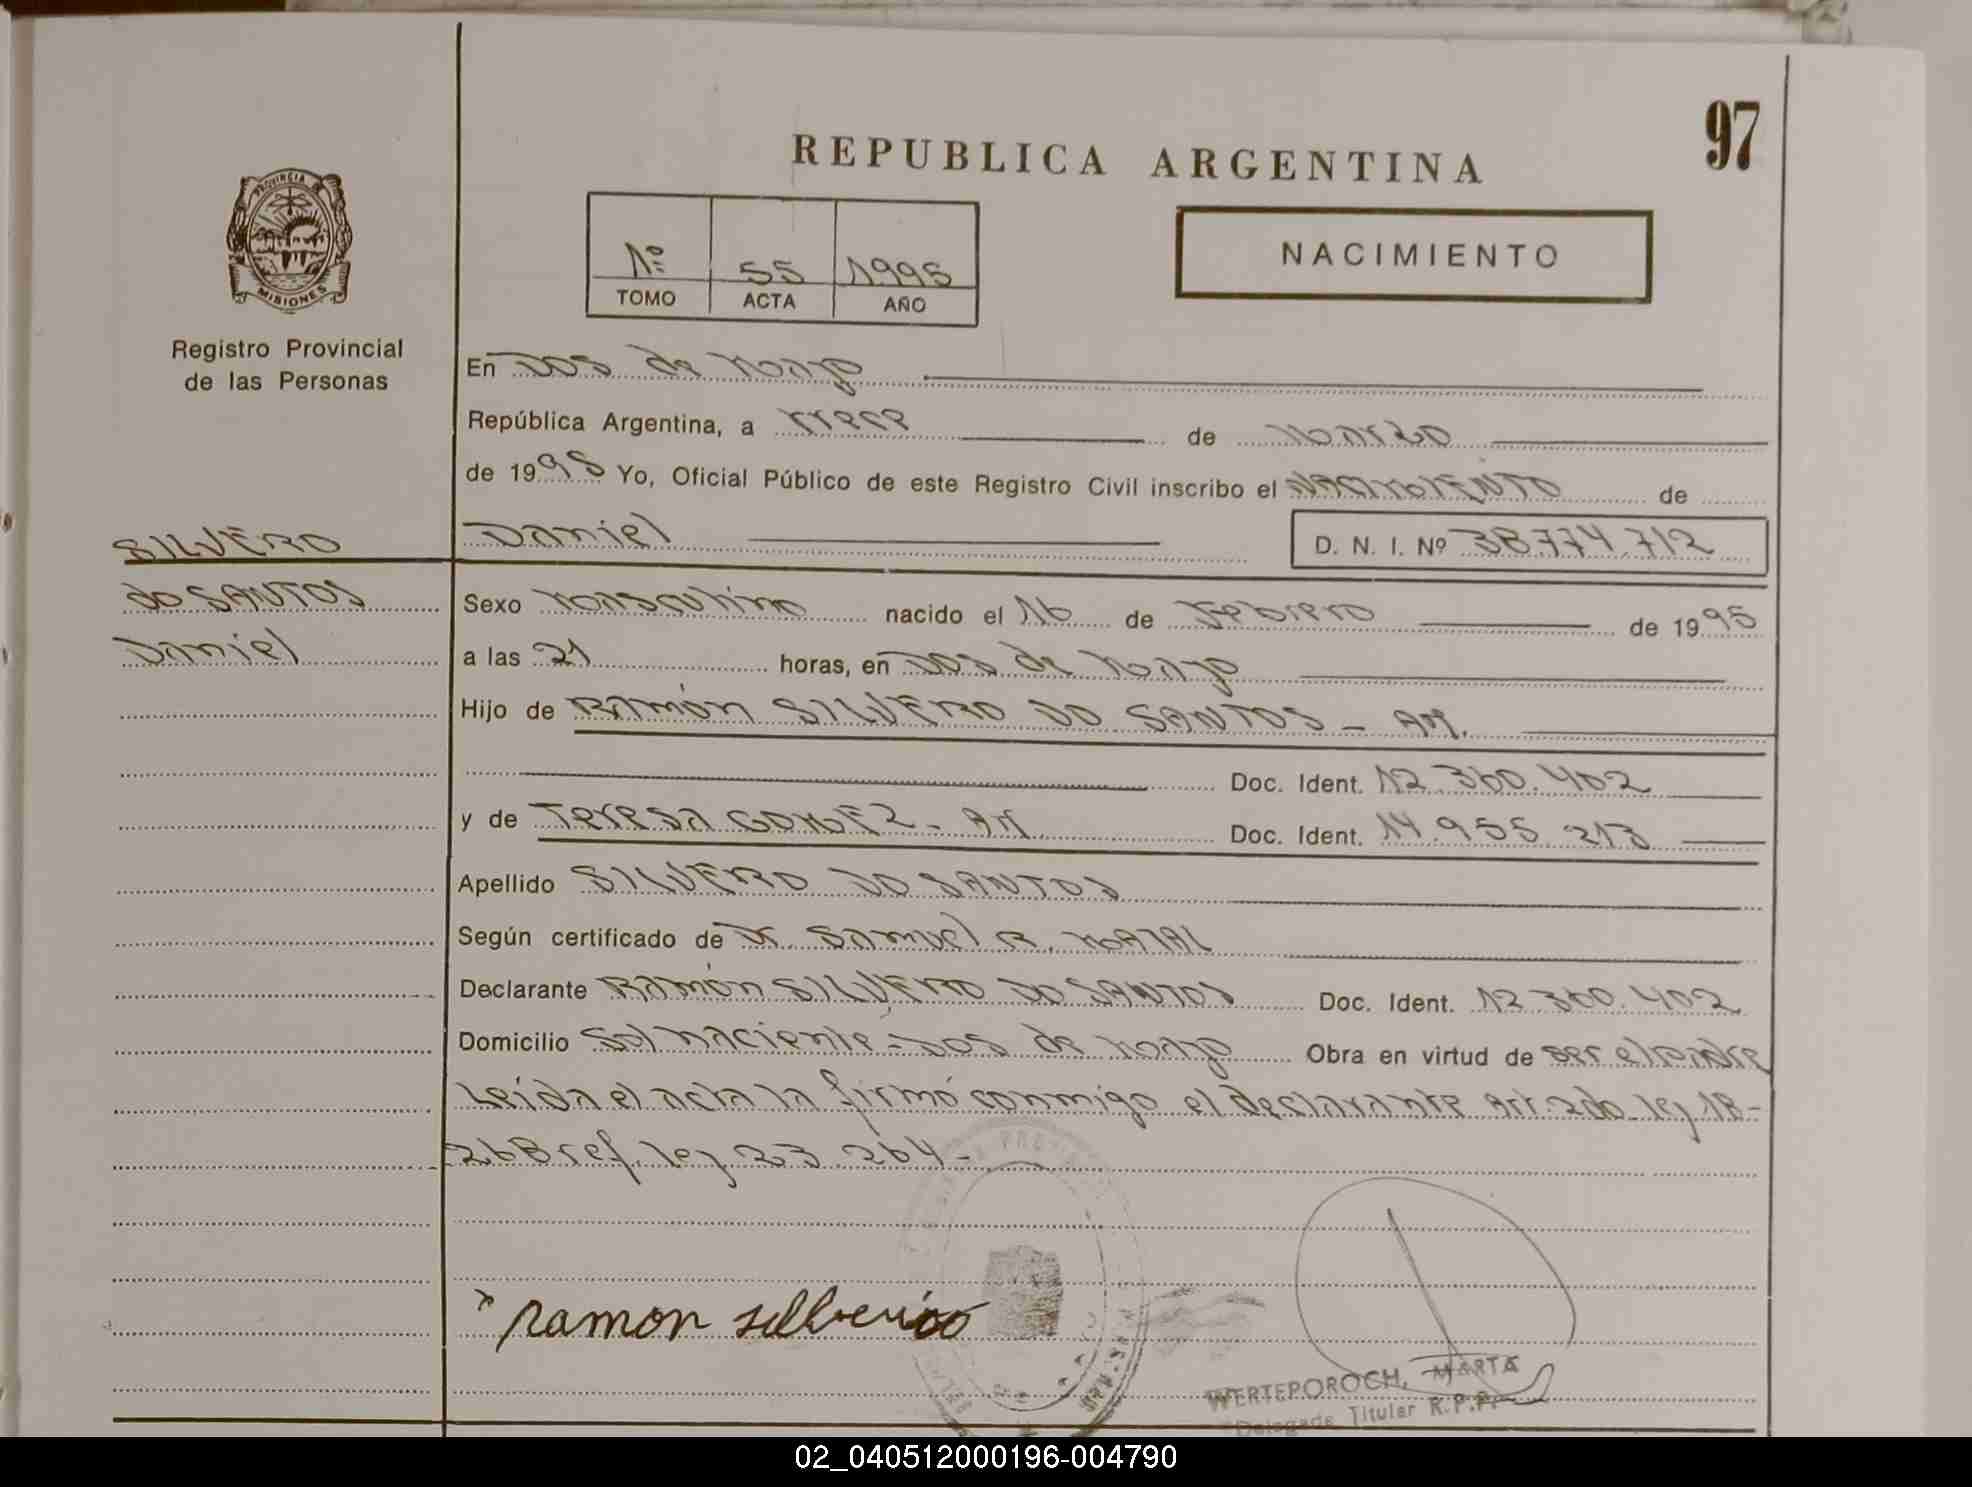 97
REPUBLICA ARGENTINA
PROVINCIA DE
MISIONES
Registro Provincial
de las Personas
Nº 55 1995
TOMO ACTA AÑO
NACIMIENTO
En Dos de Mayo
República Argentina, a trece de Marzo
de 1995 Yo, Oficial Público de este Registro Civil inscribo el NACIMIENTO de
SILVERO
do SANTOS
Daniel
Daniel D. N. I. Nº 38.774.712
Sexo Masculino nacido el 16 de Febrero de 1995
a las 21 horas, en Dos de Mayo
Hijo de RAMÓN SILVERO DO SANTOS - AM.
Doc. Ident. 12.360.402
y de Teresa GOMEZ - AM Doc. Ident. 14.955.213
Apellido SILVERO DO SANTOS
Según certificado de Dr. Samuel R.
Declarante RAMÓN SILVERO DO SANTOS Doc. Ident. 12.360.402
Domicilio Sol Naciente - Dos de Mayo Obra en virtud de ser el padre
Leída el acta la firmó conmigo el declarante Art. 2do. ley 18-
268 ref. ley 23.264-
Ramon
WERTEPOROCH, MARTA
Delegada Titular R.P.P.
02_040512000196-004790